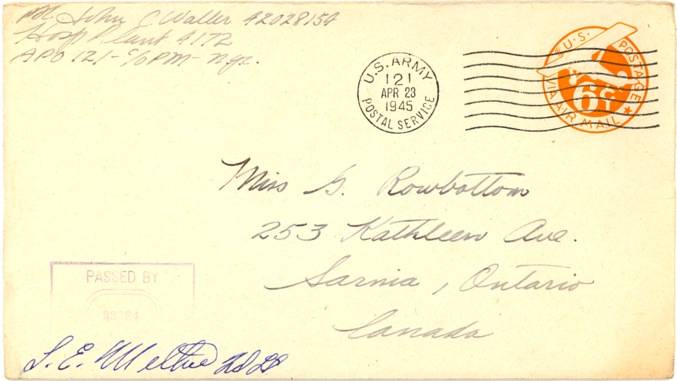 John C Waller 42028154
Hosp Plant 4172
APO 121 - % PM - N.Y.
U.S. ARMY
121
APR 23
1945
POSTAL SERVICE
U.S. POSTAGE
6¢
VIA AIR MAIL
Miss G. Rowbottom
253 Kathleen Ave.
Sarnia, Ontario
Canada
PASSED BY
S. E.